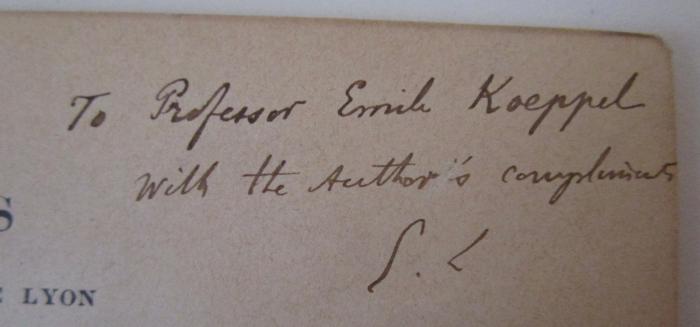 To Professor Emile Koeppel
with the Author's compliments
S. L
S
E LYON